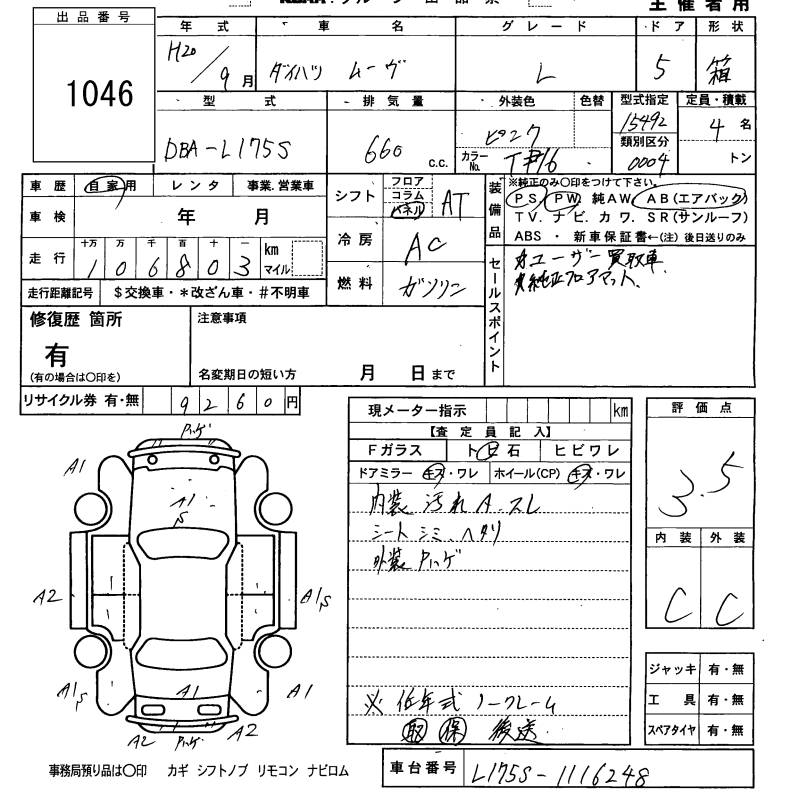 主催者用
出品番号
1046
年式 車名 グレード ドア 形状
H20/9月 ダイハツ ムーヴ L 5 箱
型式 排気量 外装色 色替 型式指定 定員・積載
DBA-L175S 660 c.c. ピンク 15492 4名
カラーNo. T#16 類別区分 0004 トン
車歴 自家用 レンタ 事業.営業車
車検 年 月
走行 十万 万 千 百 十 一 km マイル
1 0 6 8 0 3
走行距離記号 $交換車・*改ざん車・#不明車
シフト フロア コラム パネル AT
冷房 AC
燃料 ガソリン
装備品 ※純正のみ○印をつけて下さい。
PS. PW. 純AW. AB(エアバック)
TV. ナビ. カワ. SR(サンルーフ)
ABS・新車保証書←(注)後日送りのみ
セールスポイント
ユーザー買取車
純正フロアマット.
修復歴 箇所
有
(有の場合は○印を)
注意事項
名変期日の短い方 月 日まで
リサイクル券 有・無 9260円
現メーター指示 km
【査定員記入】
Fガラス ト 石 ヒビワレ
ドアミラー キズ・ワレ ホイール(CP) キズ・ワレ
内装 汚れ A.スレ
シート シミ.ヘタリ
外装 Pハゲ
※低年式 ノークレーム
取 保 後送
評価点
3.5
内装 外装
C C
ジャッキ 有・無
工具 有・無
スペアタイヤ 有・無
Pハゲ
A1
A1
S
A2
A1S
A1S
A1
A1
A2
A2
Pハゲ
事務局預り品は○印 カギ シフトノブ リモコン ナビロム
車台番号 L175S-1116248